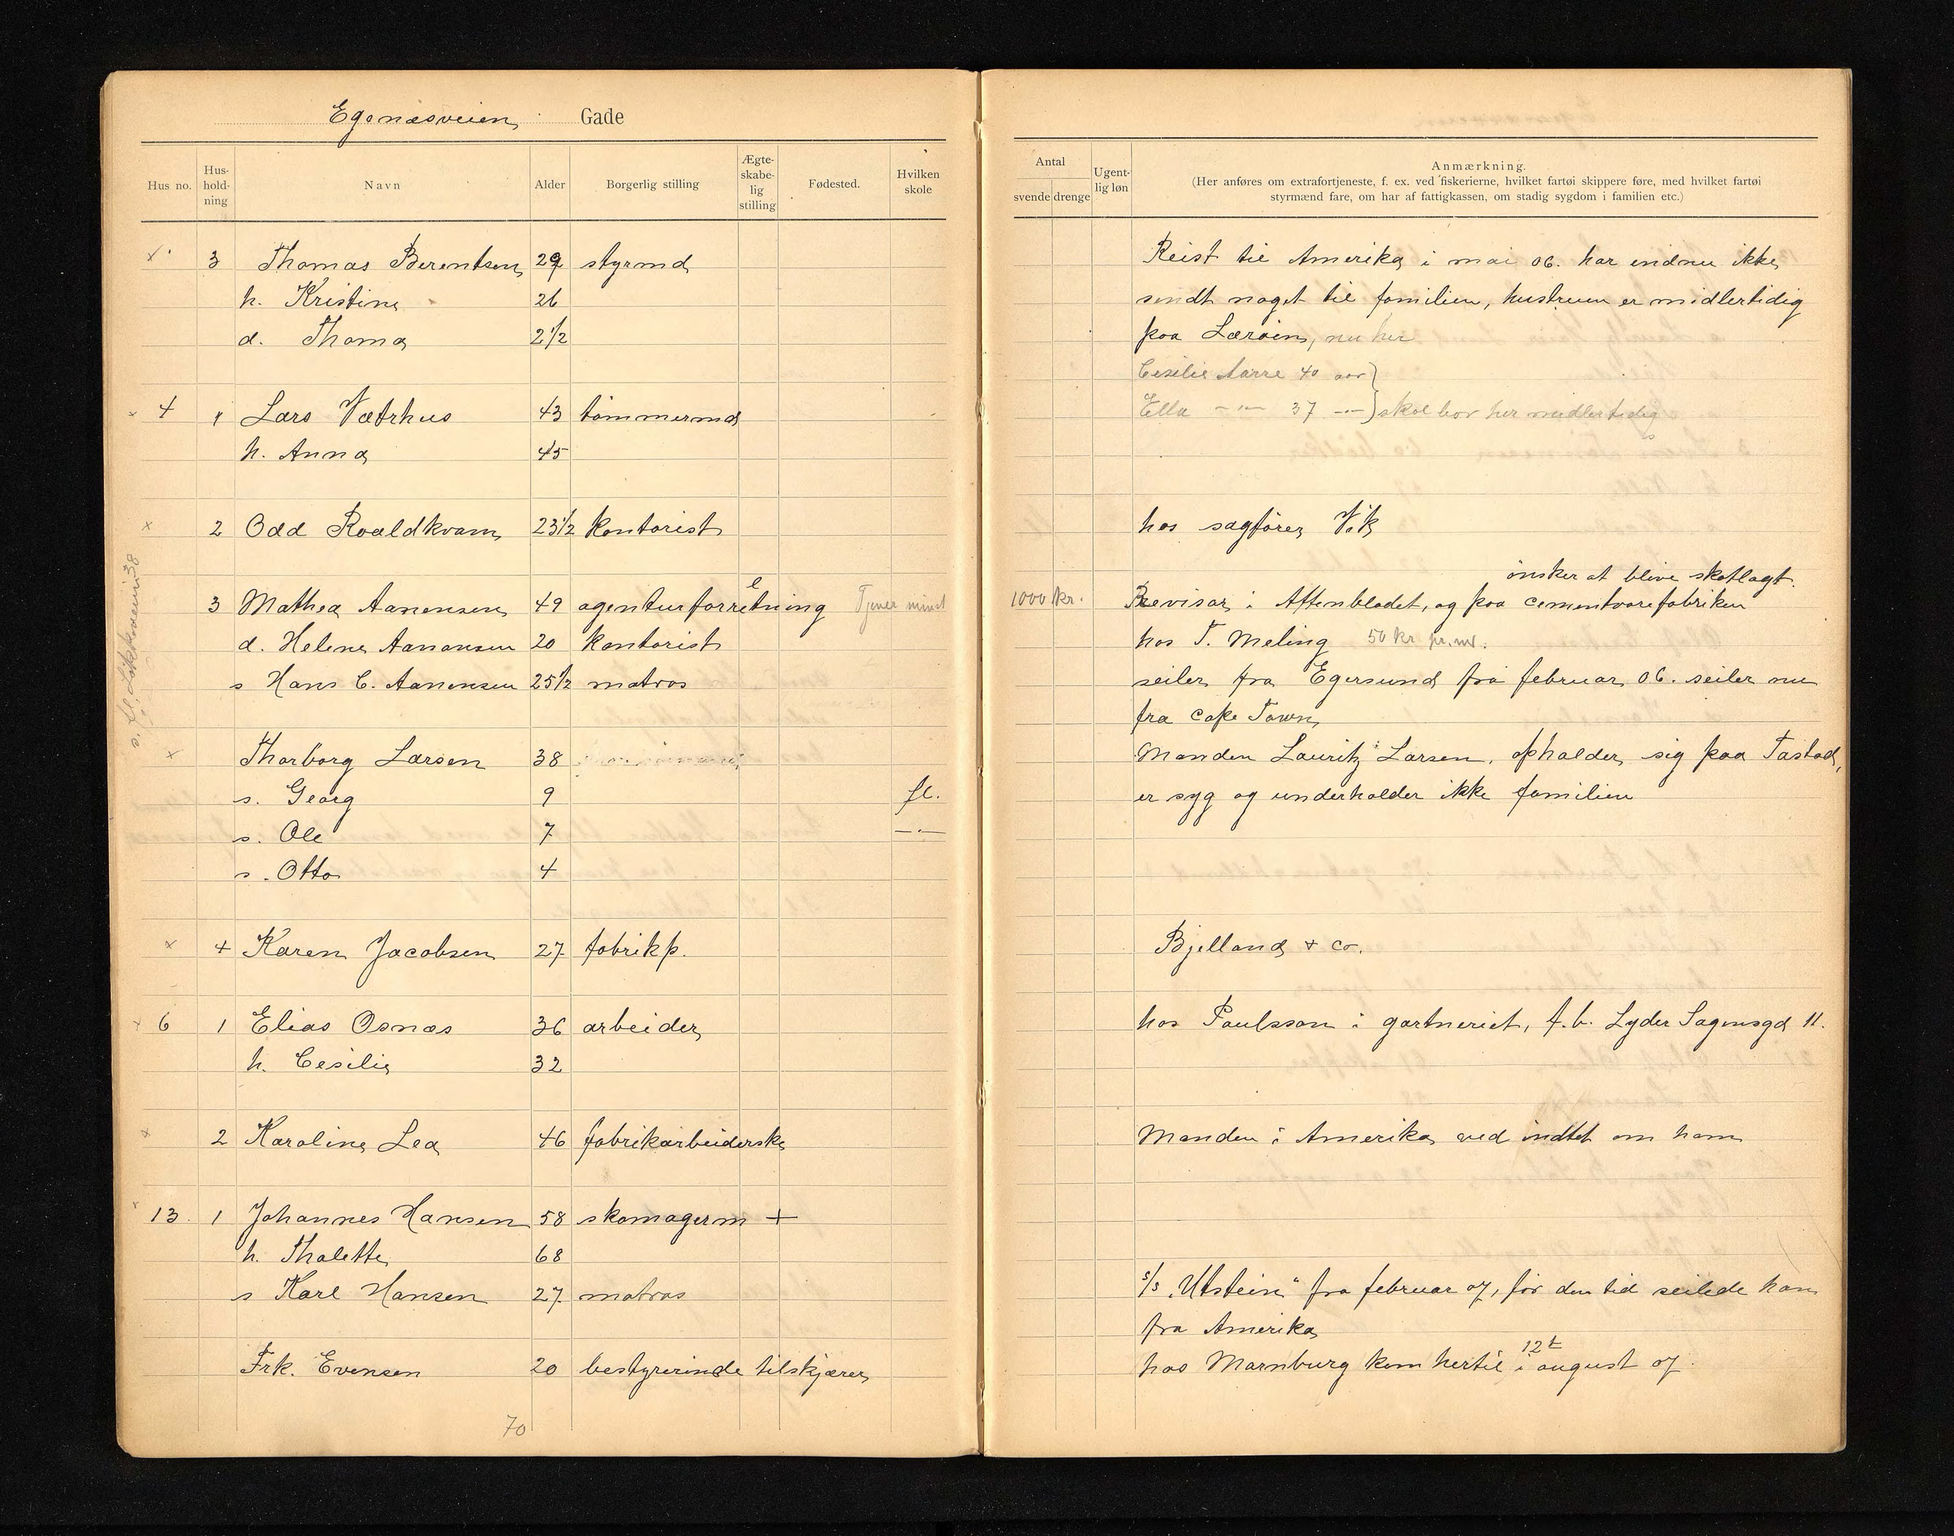 Egenæsveien Gade
Hus no. Hus-hold-ning Navn Alder Borgerlig stilling Ægte-skabe-lig stilling Fødested. Hvilken skole
Antal svende drenge Ugent-lig løn Anmærkning.
(Her anføres om extrafortjeneste, f. ex. ved fiskerierne, hvilket fartøi skippere føre, med hvilket fartøi
styrmænd fare, om har af fattigkassen, om stadig sygdom i familien etc.)
x 3 Thomas Berentsen 29 styrmd Reist til Amerika i mai 06. har endnu ikke
h. Kristine 26 sendt noget til familien, hustruen er midlertidig
d. Thoma 2 1/2 paa Lærvin, nu her
Cesilie Aarre 40 aar}
x 4 1 Lars Vætrhus 43 tømmermd Ella -"- 37 -"-} skal bor her midlertidig
h. Anna 45
x 2 Odd Roaldkvam 23 1/2 kontorist hos sagfører Vik
s. fl. Løkkeveien 38
ønsker at blive skatlagt.
3 Mathea Aanensen 49 agenturforretning Tjener mindst 1000 kr. Revisor i Aftenbladet, og paa cementvarefabriken
d. Helene Aanensen 20 kontorist hos T. Meling 50 kr pr. md.
s Hans C. Aanensen 25 1/2 matros seiler fra Egersund fra februar 06. seiler nu
fra Cape Town
x Thorborg Larsen 38 Manden Lauritz Larsen, opholder sig paa Tastad,
s. Georg 9 fl. er syg og underholder ikke familien
s. Ole 7 -"-
s. Otto 4
x 4 Karen Jacobsen 27 fabrikp. Bjelland & co.
x 6 1 Elias Osnæs 36 arbeider hos Paulsson i gartneriet, f.b. Lyder Sagensgd 11.
h. Cesilie 32
x 2 Karoline Lea 46 fabrikarbeiderske Manden i Amerika ved indtet om ham
x 13. 1 Johannes Hansen 58 skomagerm +
h. Thalette 68
s Karl Hansen 27 matros s/s "Utstein" fra februar 07, før den tid seilede han
fra Amerika
12t
Frk. Evensen 20 bestyrerinde tilskjærer hos Marnburg kom hertil i august 07.
70